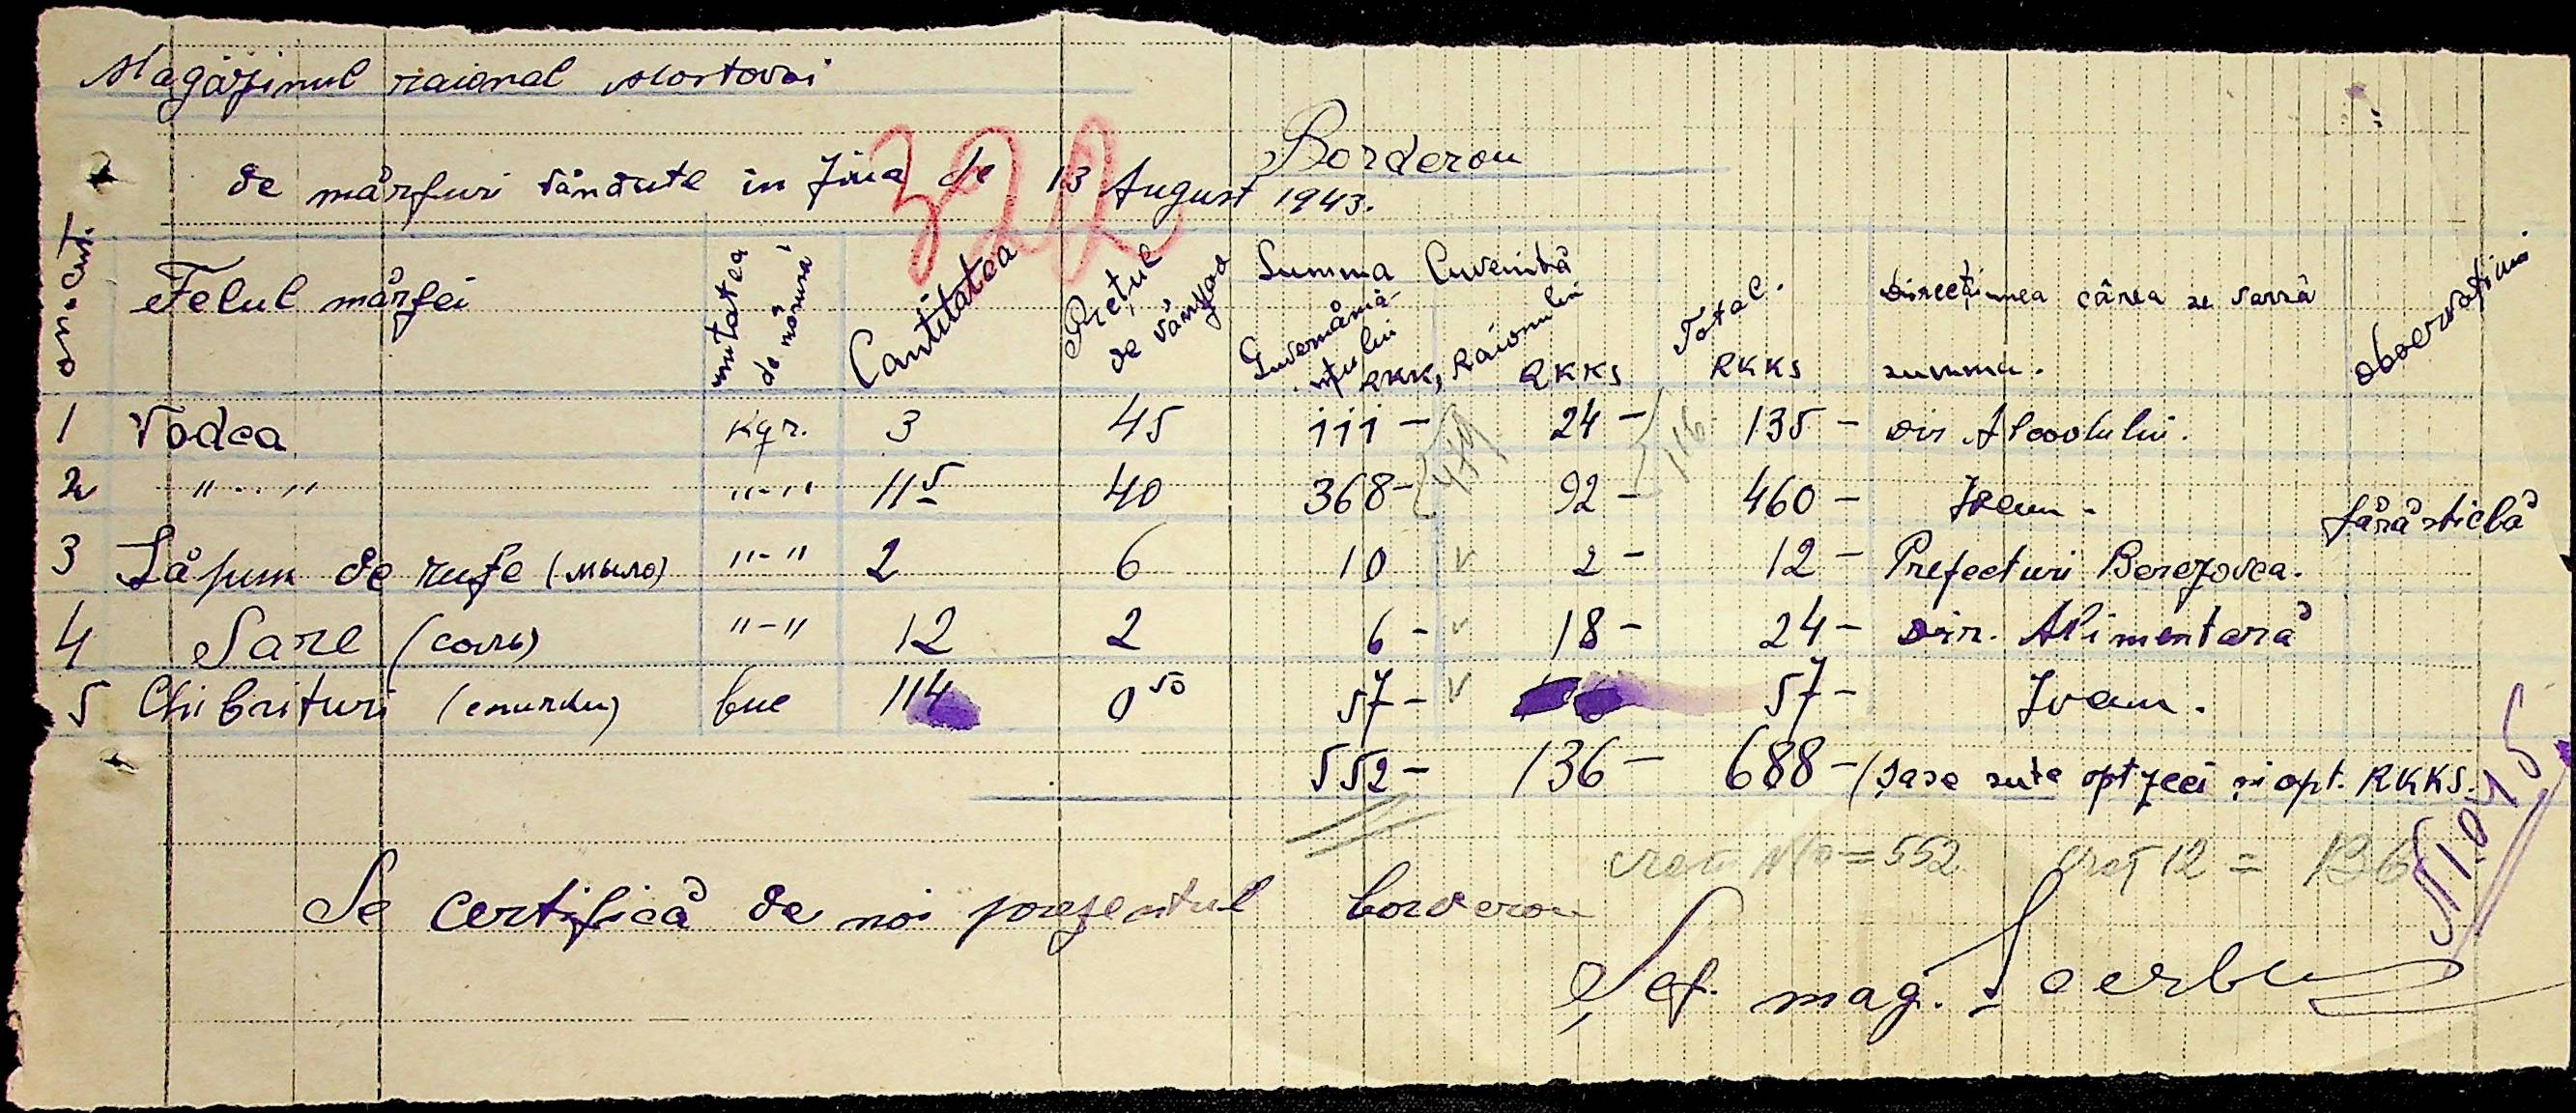 Magăzinul raional Mostovoi
Borderou
de mărfuri vândute în ziua de 13 August 1943.
322
Felul mărfei
unitatea de măsură
Cantitatea
Prețul de vânzare
Summa Cuvenită
Guvernământului RKKS
Raionului RKKS
Total. RKKS
Direcțiunea cărea se varsă summa.
observațiuni
1 Vodca kgr. 3 45 111 — 24 — 135 — Dir Alcoolului.
2 "-" "-" 11 5 40 368 — 92 — 460 — Idem. fără sticlă
479 116
3 Săpun de rufe (мыло) "-" 2 6 10 v 2 — 12 — Prefecturi Berezovca.
4 Sare (соль) "-" 12 2 6 — v 18 — 24 — Dir. Alimentară
5 Chibrituri (спички) buc 114 0 50 57 — v 57 — Idem.
552 — 136 — 688 — (șase sute optzeci și opt. RKKS.
счет = 552 счет 12 = 136
Se certifică de noi prezentul borderou
Șef. mag.